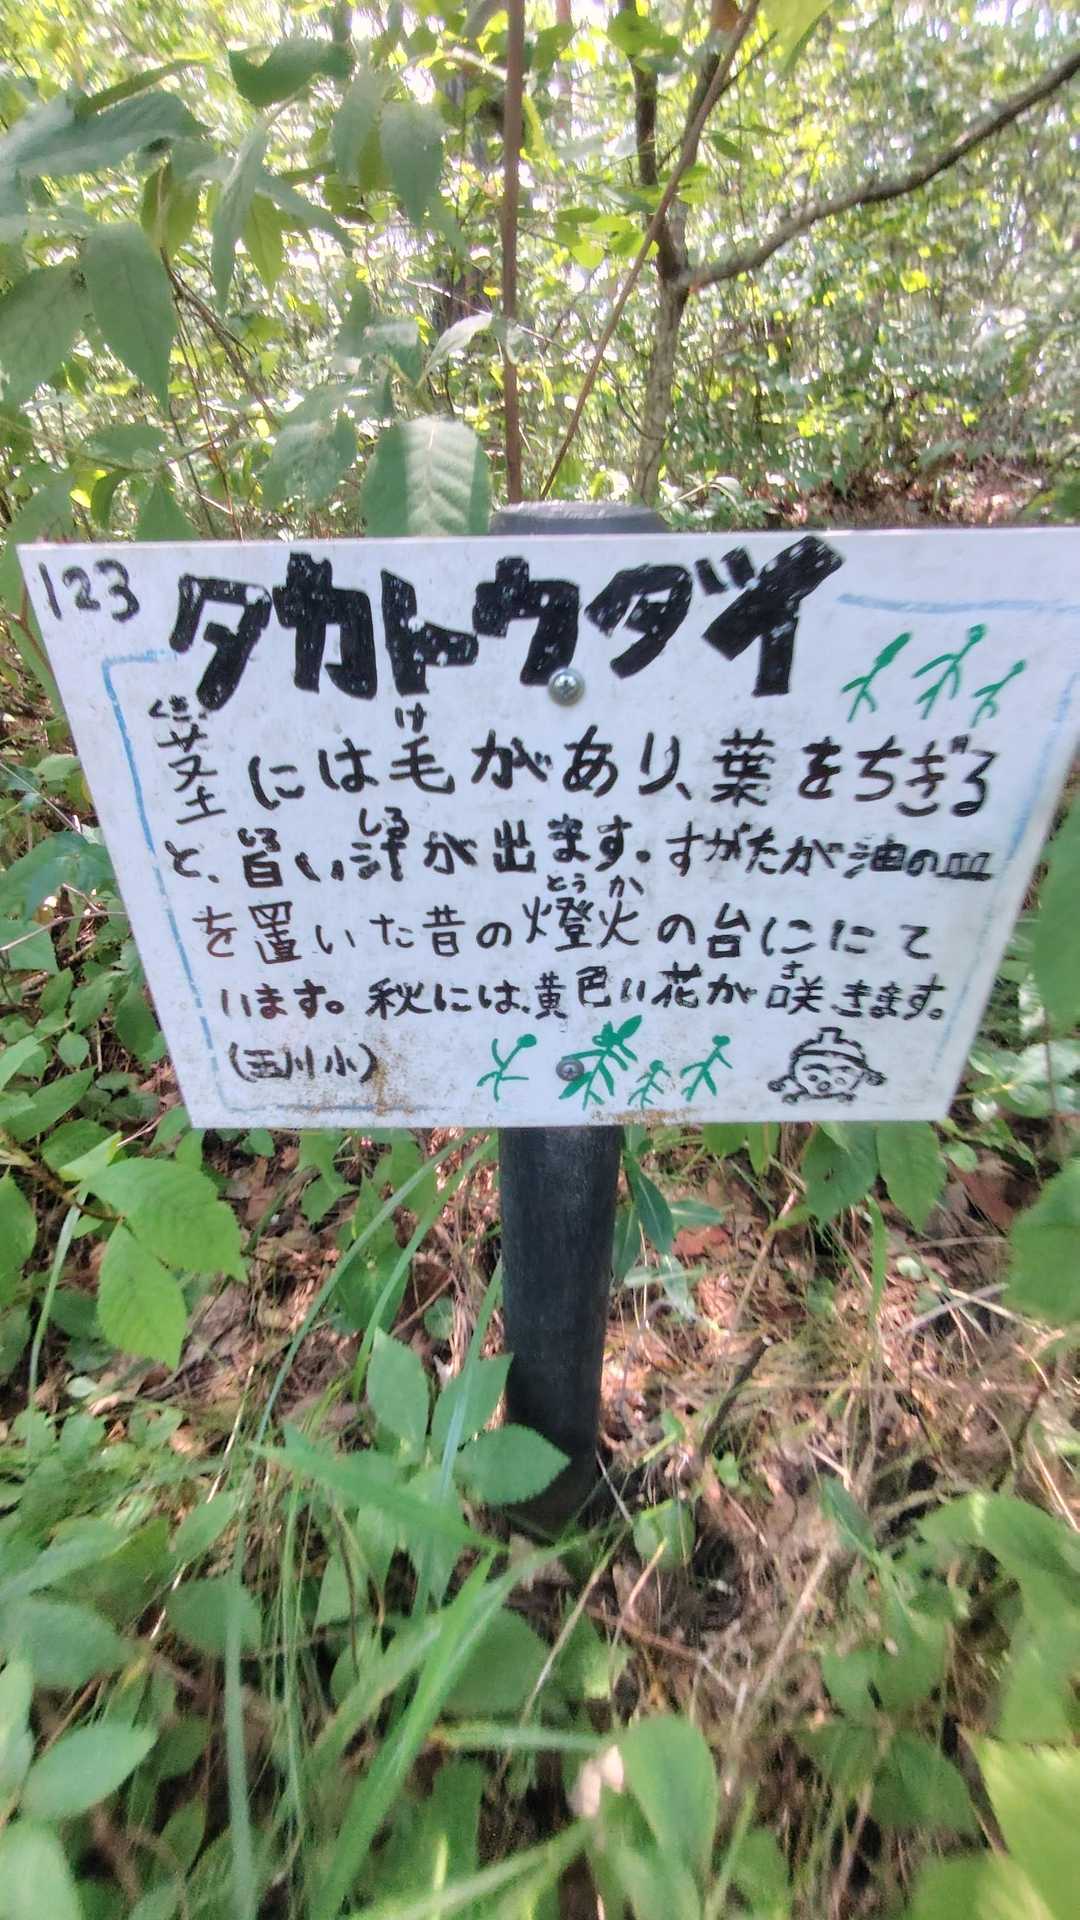 123 タカトウダイ
茎には毛があり、葉をちぎる
と、白い汁が出ます。すがたが油の皿
を置いた昔の燈火の台ににて
います。秋には、黄色い花が咲きます。
(玉川小)